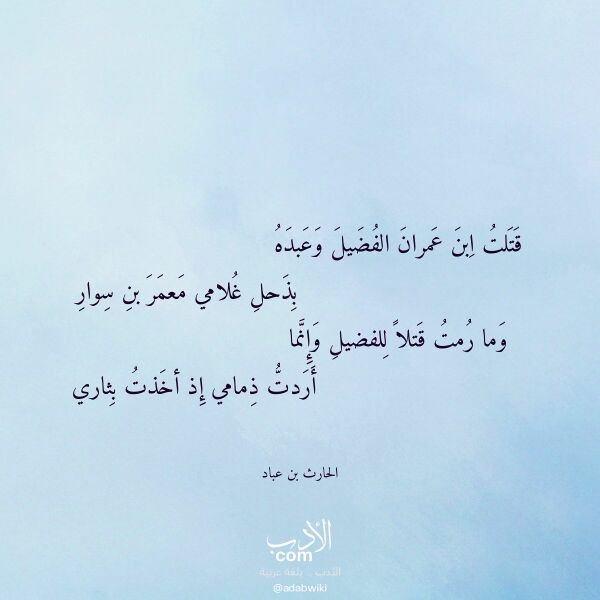 قَتَلتُ اِبنَ عَمرانَ الفُضَيلَ وَعَبدَهُ
بِذَحلِ غُلامي مَعمَرَ بنِ سِوارِ
وَما رُمتُ قَتلاً لِلفضيلِ وَإِنَّما
أَرَدتُّ ذِمامي إِذ أَخَذتُ بِثاري
الحارث بن عباد
الأدب
com
الأدب .. بلغة عربية
@adabwiki